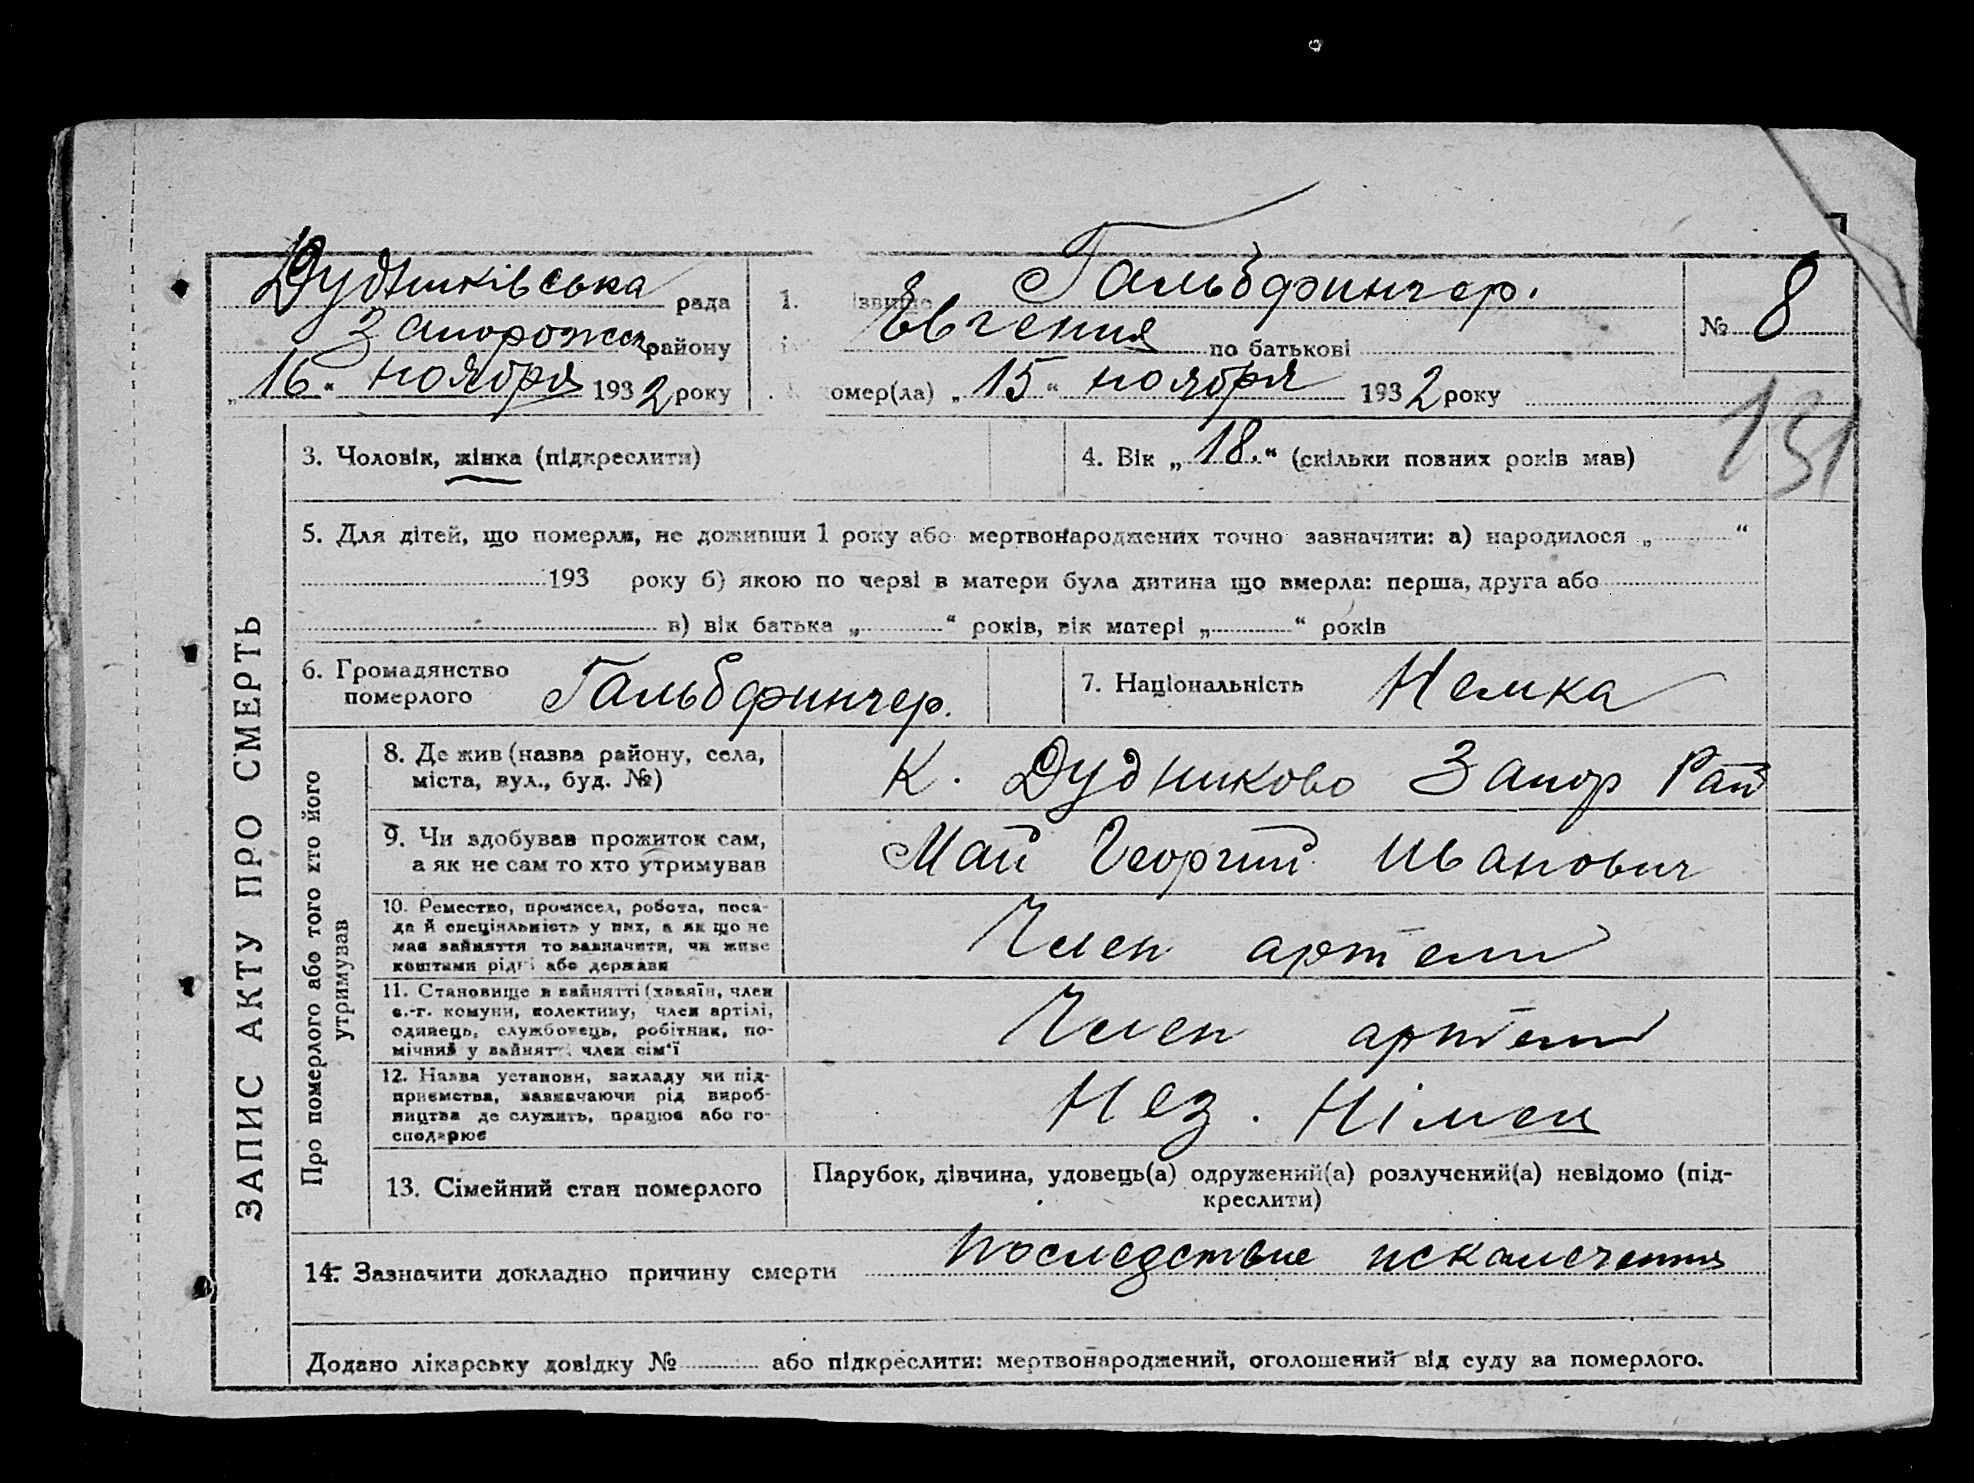 Дудниківська рада
Запорожск району
„16“ ноября 1932 року
1. ізвище Гальбфингер.
Евгения по батькові
омер(ла) „15“ ноября 1932 року
№ 8
131
ЗАПИС АКТУ ПРО СМЕРТЬ
3. Чоловік, жінка (підкреслити)
4. Вік „18.“ (скільки повних років мав)
5. Для дітей, що померли, не доживши 1 року або мертвонароджених точно зазначити: а) народилося „ “
193 року б) якою по черзі в матери була дитина що вмерла: перша, друга або
в) вік батька „ “ років, вік матері „ “ років
6. Громадянство
померлого Гальбфингер.
7. Національність Немка
Про померлого або того хто його
утримував
8. Де жив (назва району, села,
міста, вул., буд. №)
К. Дудниково Запор Рай
9. Чи здобував прожиток сам,
а як не сам то хто утримував
Май Георгий Иванович
10. Ремество, промисел, робота, поса-
да й спеціяльність у них, а як що не
має зайняття то зазначити, чи живе
коштами рідні або держави
Член артели
11. Становище в зайнятті (хазяїн, член
с.-г. комуни, колективу, член артілі,
одинець, службовець, робітник, по-
мічний у зайнятті член сім'ї
Член артели
12. Назва установи, закладу чи під-
приємства, зазначаючи рід вироб-
ництва де служить, працює або го-
сподарює
Нез. Німец
13. Сімейний стан померлого
Парубок, дівчина, удовець(а) одружений(а) розлучений(а) невідомо (під-
креслити)
14. Зазначити докладно причину смерти последствие искалечения
Додано лікарську довідку № або підкреслити: мертвонароджений, оголошений від суду за померлого.